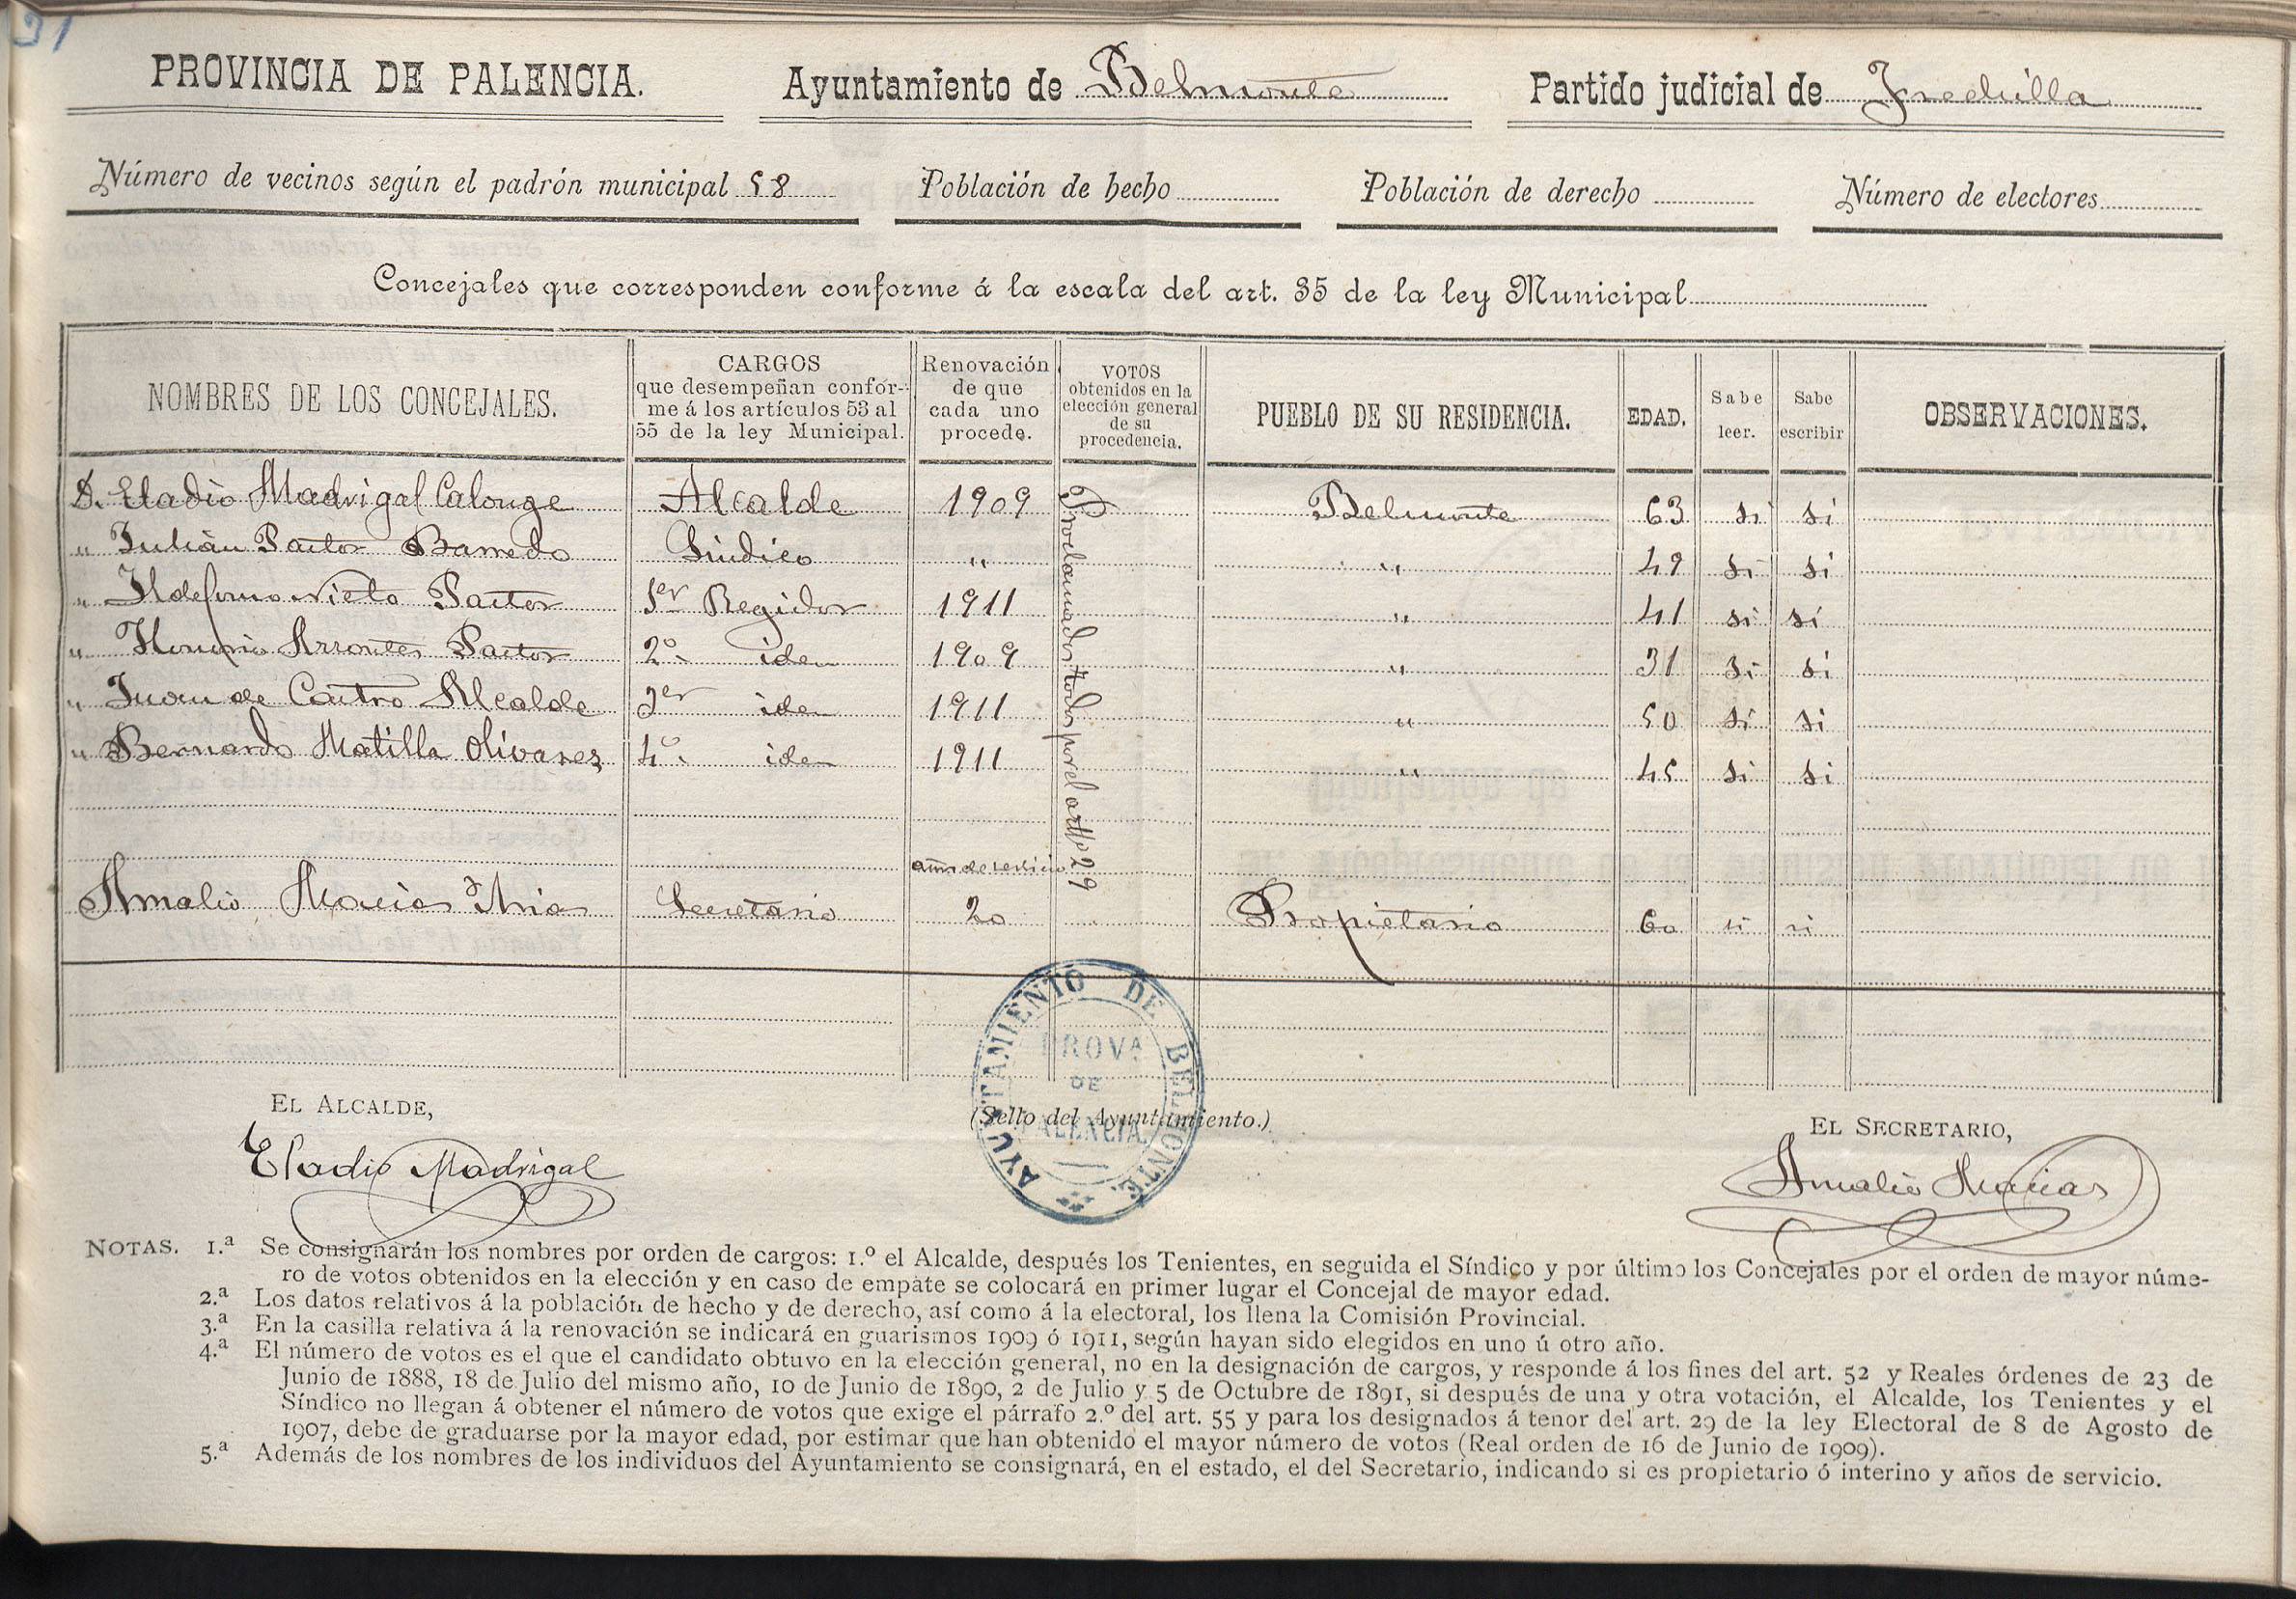 31
PROVINCIA DE PALENCIA. Ayuntamiento de Belmonte Partido judicial de Frechilla
Número de vecinos según el padrón municipal 58 Población de hecho Población de derecho Número de electores
Concejales que corresponden conforme á la escala del art. 35 de la ley Municipal
NOMBRES DE LOS CONCEJALES.
CARGOS
que desempeñan confor-
me á los artículos 53 al
55 de la ley Municipal.
Renovación
de que
cada uno
procede.
VOTOS
obtenidos en la
elección general
de su
procedencia.
PUEBLO DE SU RESIDENCIA.
EDAD.
Sabe
leer.
Sabe
escribir
OBSERVACIONES.
D. Eladio Madrigal Calonge Alcalde 1909 Belmonte 63 si si
" Julián Pastor Barredo Sindico " " 49 si si
" Ildefonso Nieto Pastor 1er Regidor 1911 " 41 si si
" Honorio Arrontes Pastor 2º iden 1909 " 31 si si
" Juan de Castro Alcalde 3er iden 1911 " 50 si si
" Bernardo Matilla Olivares 4º iden 1911 " 45 si si
Proclamados todos por el artº 29
años de servicio
Amalio Macias Aria Secretario 20 Propietario 60 si si
AYUNTAMIENTO DE BELMONTE.
PROVA
DE
PALENCIA
EL ALCALDE,
(Sello del Ayuntamiento.)
EL SECRETARIO,
Eladio Madrigal
Amalio Macias
NOTAS. 1.ª Se consignarán los nombres por orden de cargos: 1.º el Alcalde, después los Tenientes, en seguida el Síndico y por último los Concejales por el orden de mayor núme-
ro de votos obtenidos en la elección y en caso de empate se colocará en primer lugar el Concejal de mayor edad.
2.ª Los datos relativos á la población de hecho y de derecho, así como á la electoral, los llena la Comisión Provincial.
3.ª En la casilla relativa á la renovación se indicará en guarismos 1909 ó 1911, según hayan sido elegidos en uno ú otro año.
4.ª El número de votos es el que el candidato obtuvo en la elección general, no en la designación de cargos, y responde á los fines del art. 52 y Reales órdenes de 23 de
Junio de 1888, 18 de Julio del mismo año, 10 de Junio de 1890, 2 de Julio y 5 de Octubre de 1891, si después de una y otra votación, el Alcalde, los Tenientes y el
Síndico no llegan á obtener el número de votos que exige el párrafo 2.º del art. 55 y para los designados á tenor del art. 29 de la ley Electoral de 8 de Agosto de
1907, debe de graduarse por la mayor edad, por estimar que han obtenido el mayor número de votos (Real orden de 16 de Junio de 1909).
5.ª Además de los nombres de los individuos del Ayuntamiento se consignará, en el estado, el del Secretario, indicando si es propietario ó interino y años de servicio.